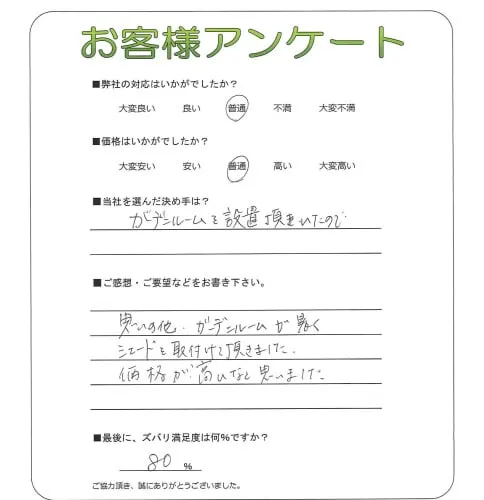 お客様アンケート
■弊社の対応はいかがでしたか？
大変良い 良い 普通 不満 大変不満
■価格はいかがでしたか？
大変安い 安い 普通 高い 大変高い
■当社を選んだ決め手は？
ガーデンルームを設置頂きいたので
■ご感想・ご要望などをお書き下さい。
思いの他、ガーデンルームが暑く
シェードを取付けて頂きました。
価格が高いなと思いました
■最後に、ズバリ満足度は何％ですか？
80 %
ご協力頂き、誠にありがとうございました。